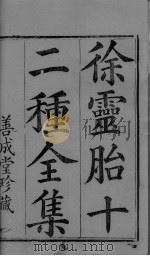 徐靈胎十
二種全集
善成堂珍藏
www.toutu8.com